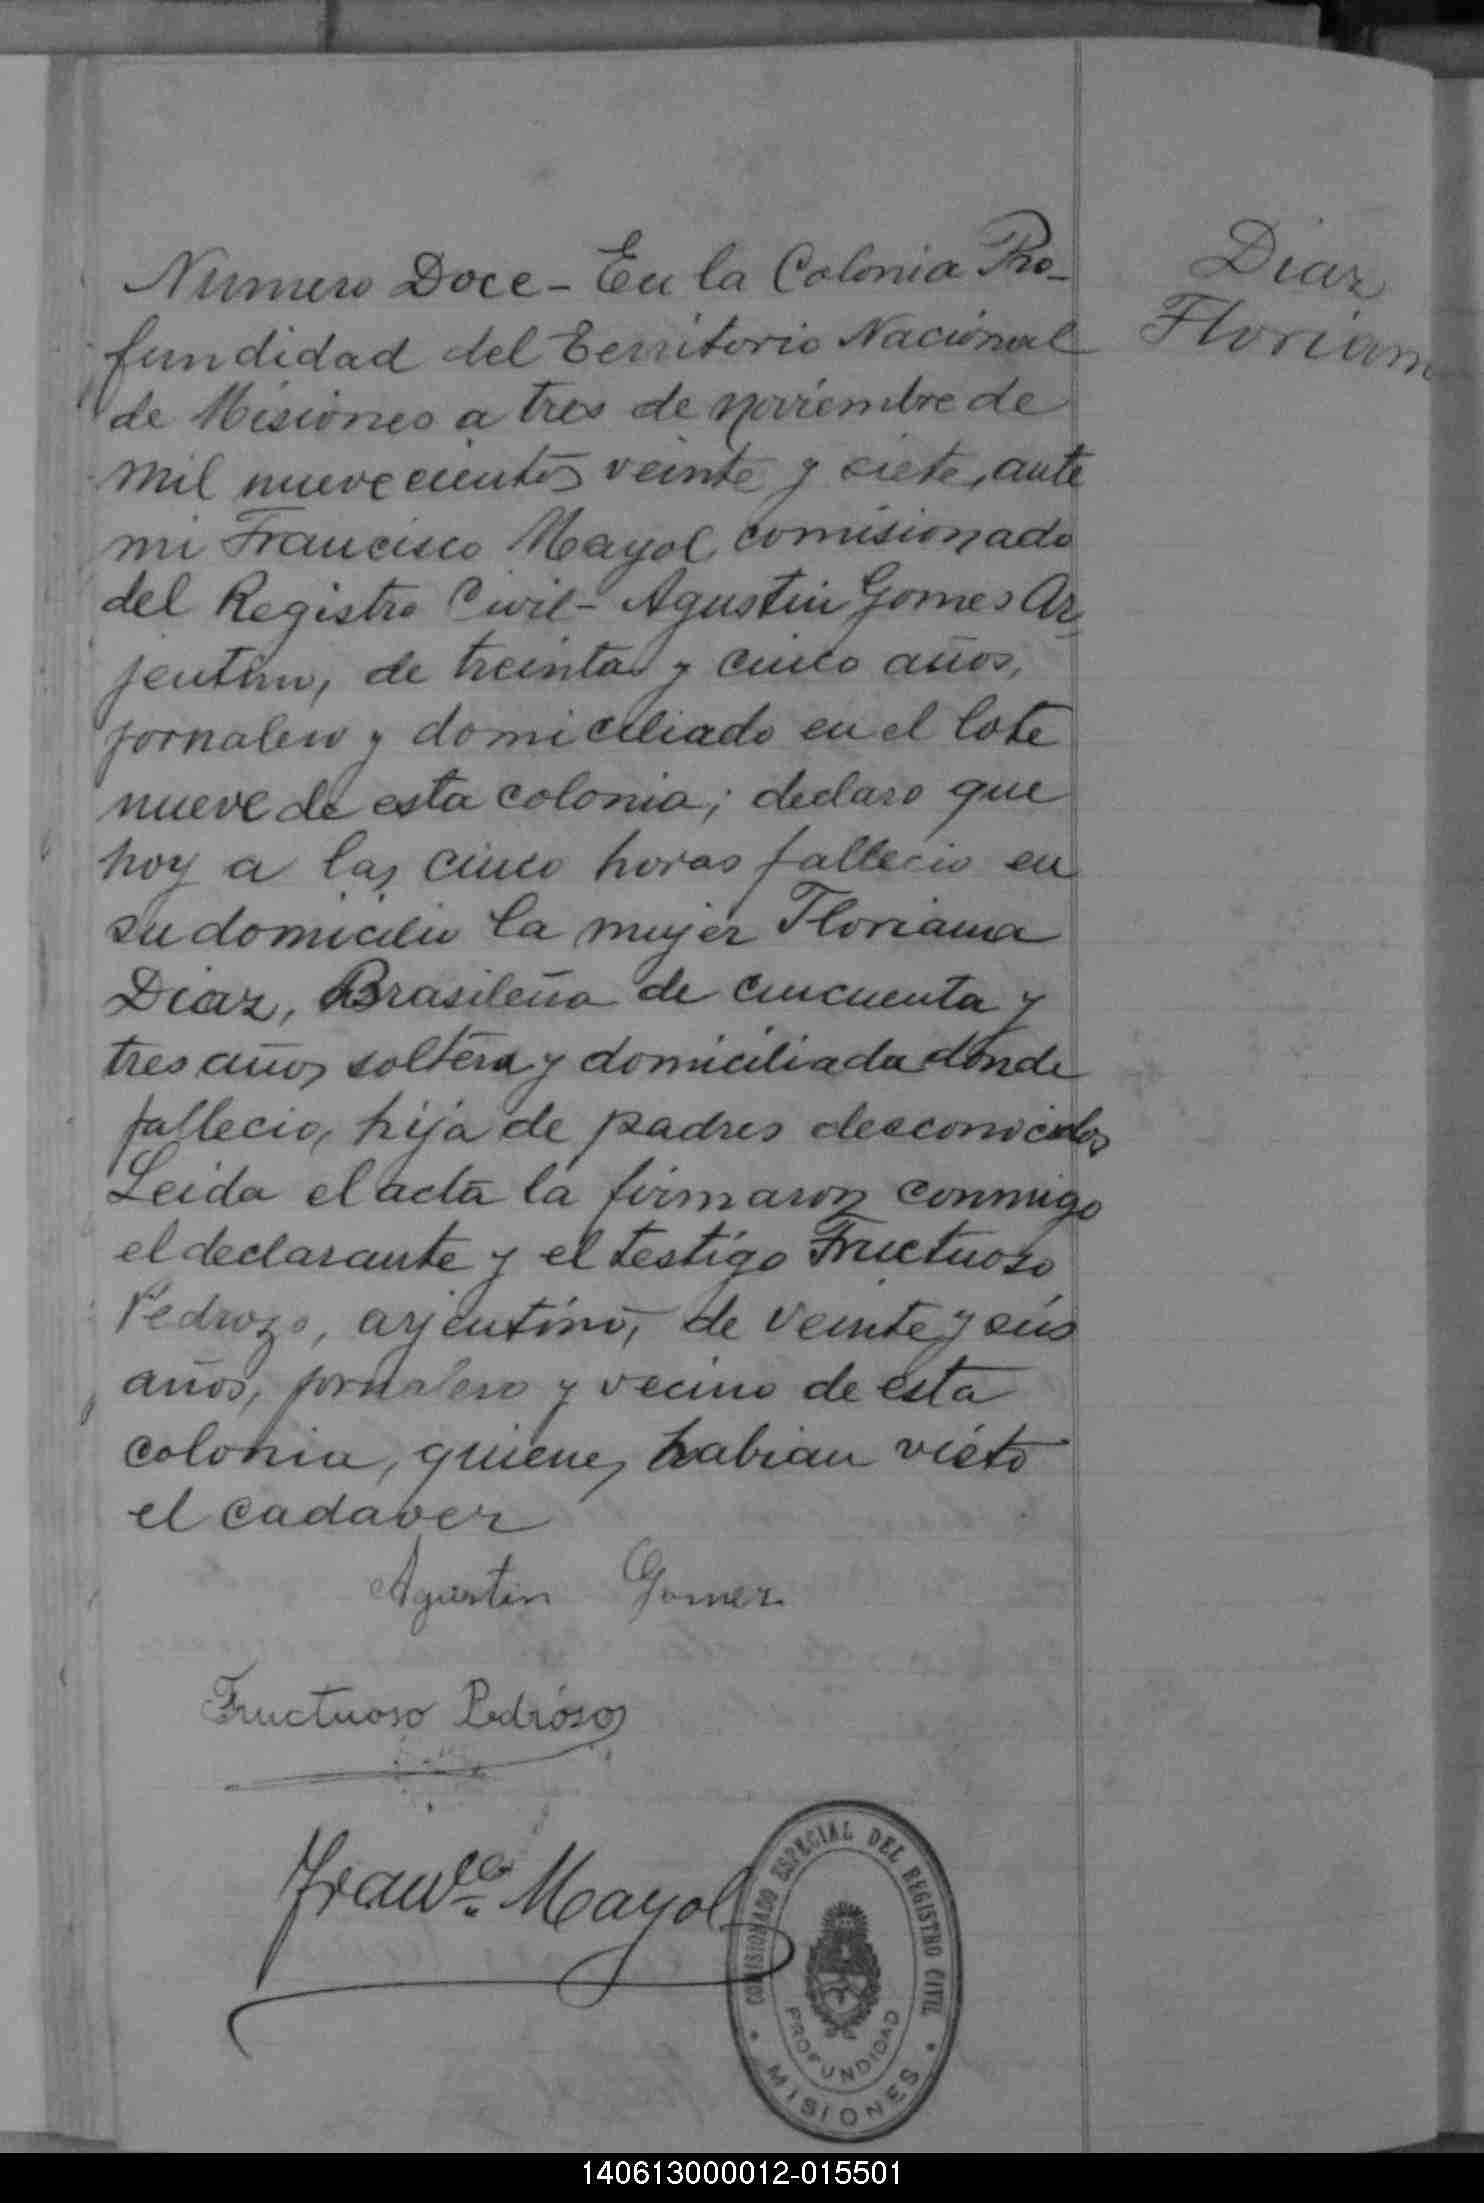 Numero Doce - En la Colonia Pro-
fundidad del Territorio Nacional
de Misiones a tres de noviembre de
mil nuevecientos veinte y siete, ante
mi Francisco Mayol, comisionado
del Registro Civil - Agustin Gomes Ar-
jentino, de treinta y cinco años,
jornalero y domiciliado en el lote
nueve de esta colonia; declaro que
hoy a las cinco horas fallecio en
su domicilio la mujer Floriana
Diaz, Brasileña de cincuenta y
tres años soltera y domiciliada donde
fallecio, hija de padres desconocidos
Leida el acta la firmaron conmigo
el declarante y el testigo Fructuoso
Pedrozo, arjentino, de veinte y seis
años, jornalero y vecino de esta
colonia, quienes habian visto
el cadaver
Diaz
Florian
Agustin Gomez
Fructuoso Pedroso
Franco. Mayol
COMISIONADO ESPECIAL DEL REGISTRO CIVIL
PROFUNDIDAD
* MISIONES *
140613000012-015501